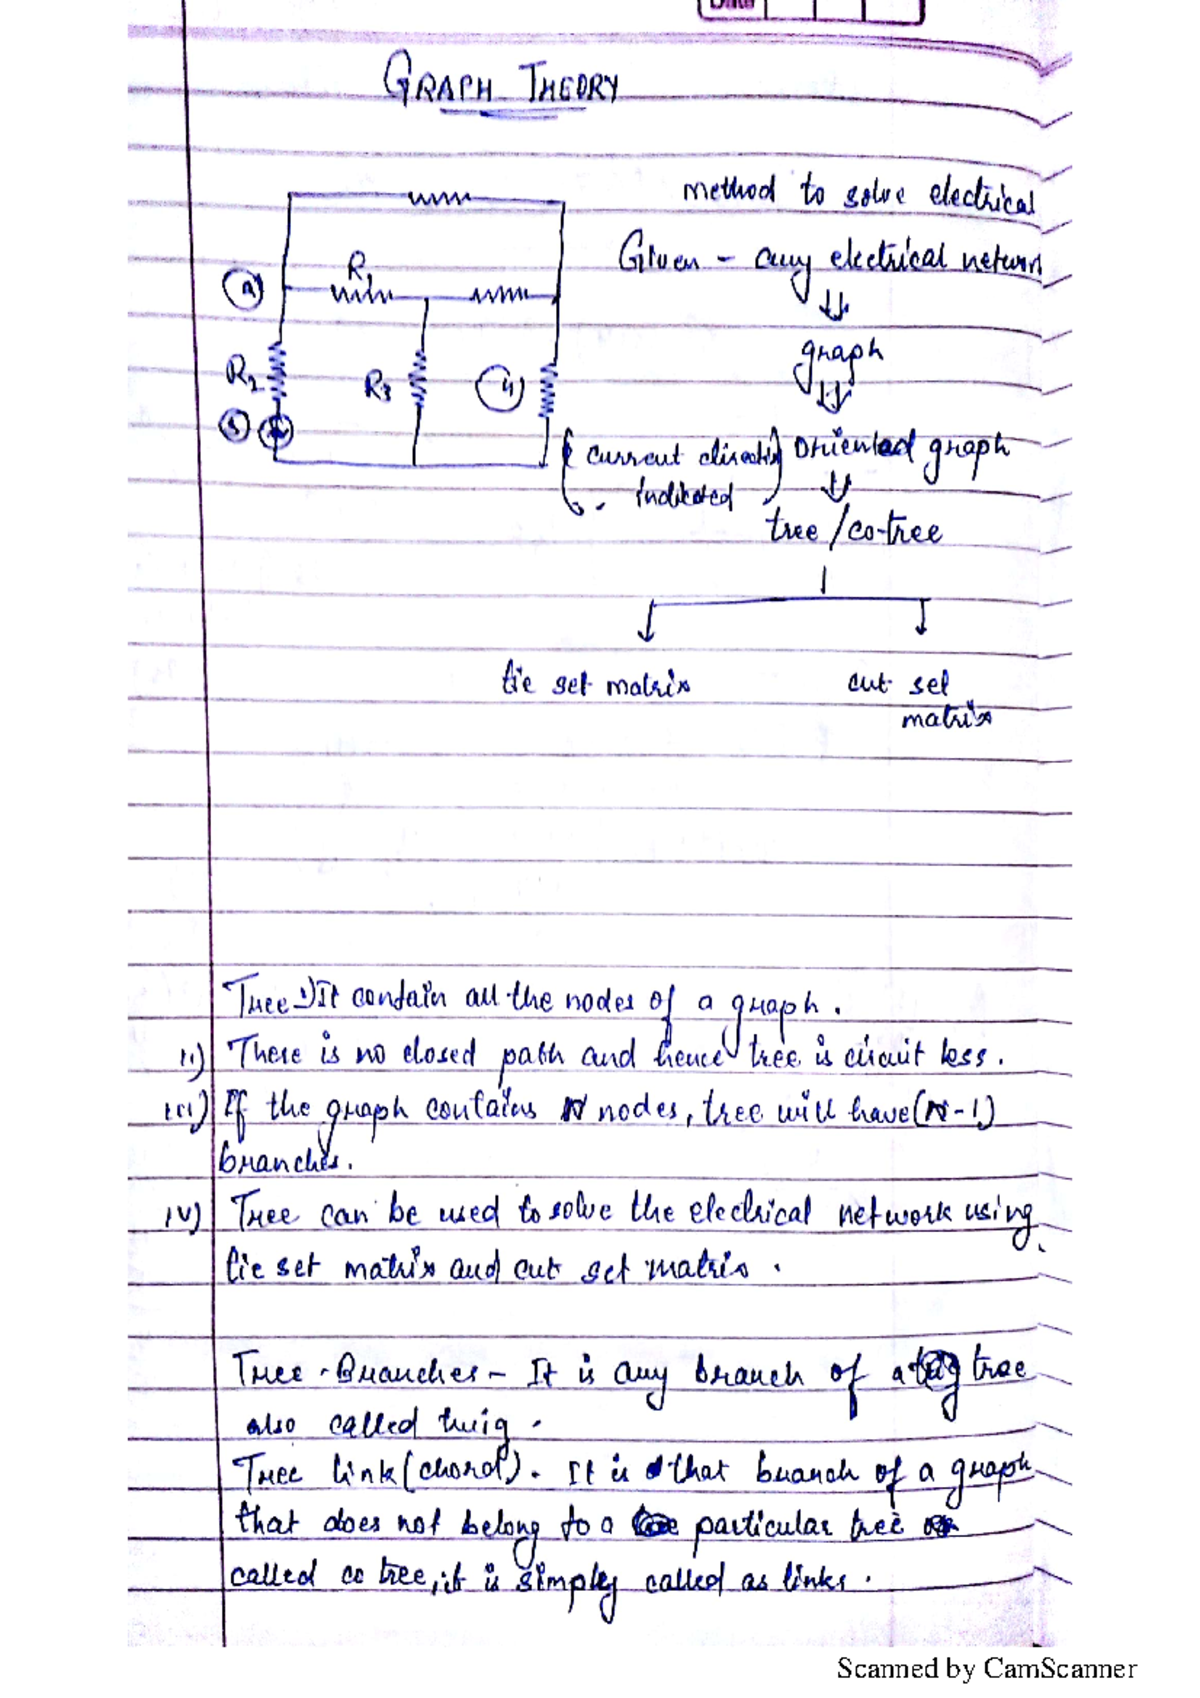 Date
GRAPH THEORY
method to solve electrical
Given - any electrical network
graph
(current direction indicated) oriented graph
tree/co-tree
tie set matrix
cut set matrix
R1
R2
R3
4
5
Tree i) It contain all the nodes of a graph.
ii) There is no closed path and hence tree is circuit less.
iii) If the graph contains N nodes, tree will have (N-1)
branches.
iv) Tree can be used to solve the electrical network using
tie set matrix and cut set matrix.
Tree-Branches - It is any branch of a tree
also called twig.
Tree link (chord). It is that branch of a graph
that does not belong to a particular tree
called co tree, it is simply called as links.
Scanned by CamScanner